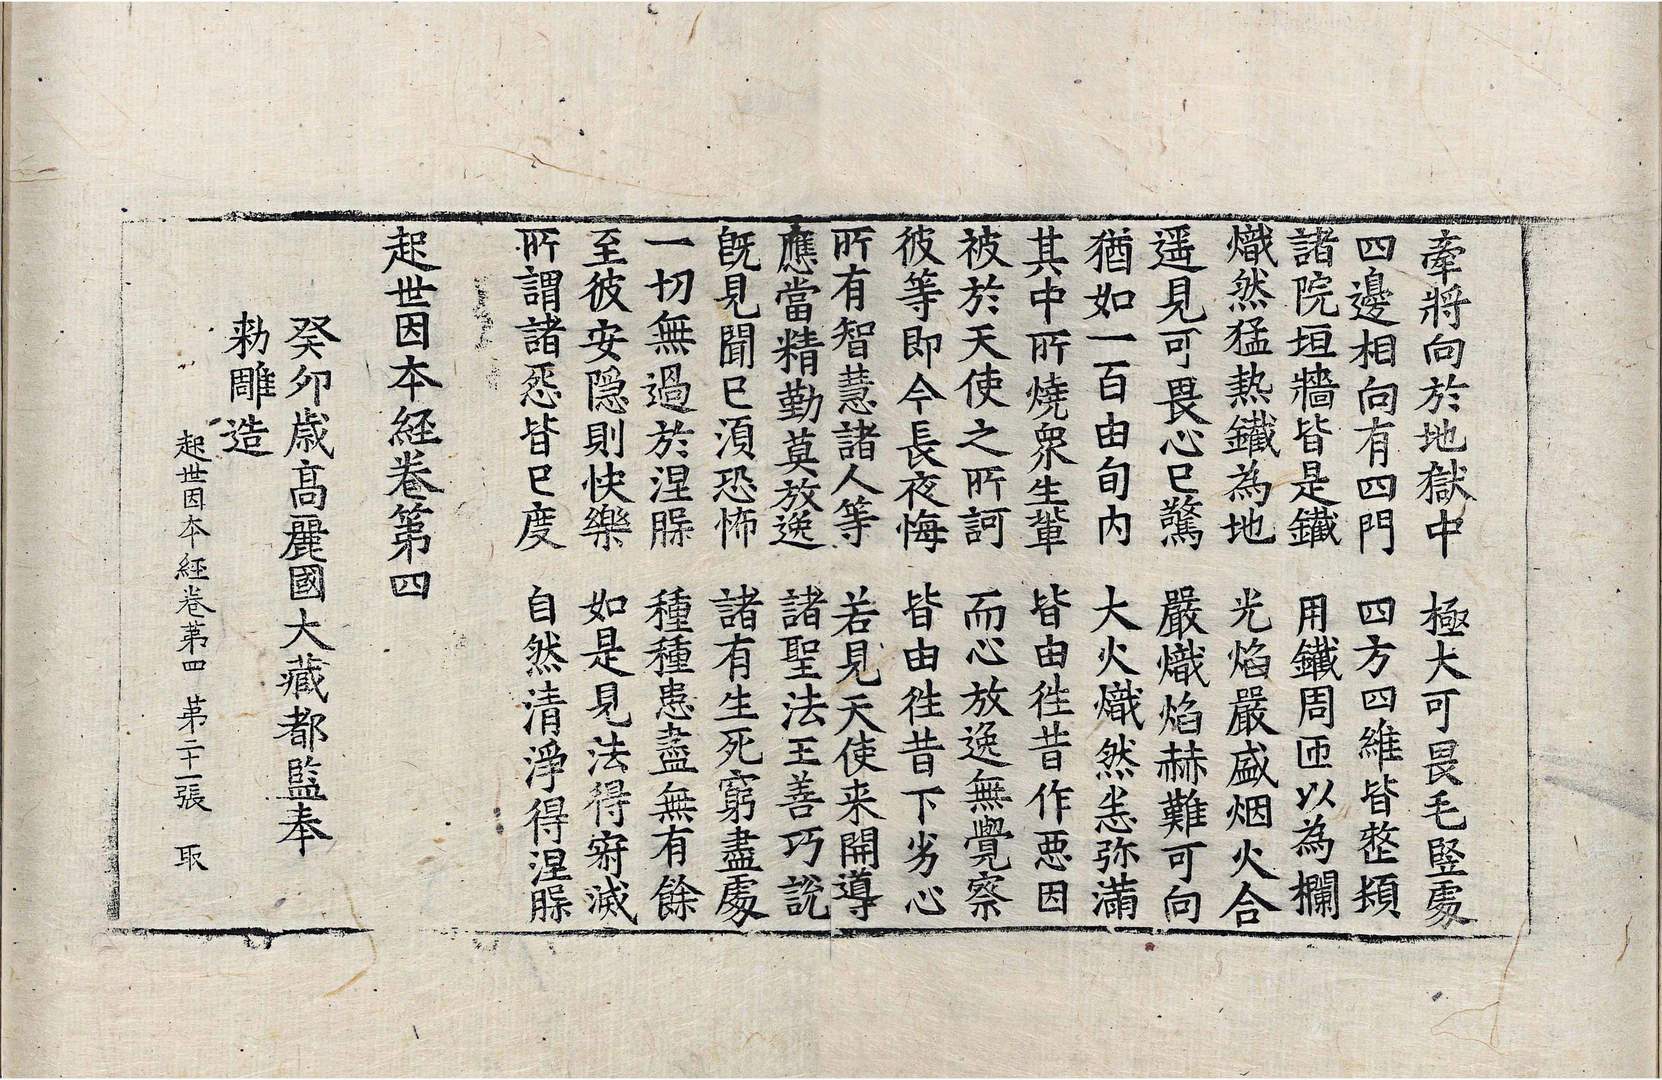 牽將向於地獄中　極大可畏毛竪處
四邊相向有四門　四方四維皆整頓
諸院垣牆皆是鐵　用鐵周匝以為欄
熾然猛熱鐵為地　光焰嚴盛烟火合
遥見可畏心已驚　嚴熾焰赫難可向
猶如一百由旬内　大火熾然恙弥滿
其中所燒衆生輩　皆由徃昔作悪因
被於天使之所訶　而心放逸無覺察
彼等即今長夜悔　皆由徃昔下劣心
所有智慧諸人等　若見天使来開導
應當精勤莫放逸　諸聖法王善巧説
旣見聞已湏恐怖　諸有生死窮盡處
一切無過於涅膎　種種患盡無有餘
至彼安隠則快樂　如是見法得㝛滅
所謂諸惌皆已度　自然清淨得涅膎
起世因本経卷第四
癸卯歳髙麗國大藏都監奉
勑雕造
起世因本経卷苐四　苐二十一張　取